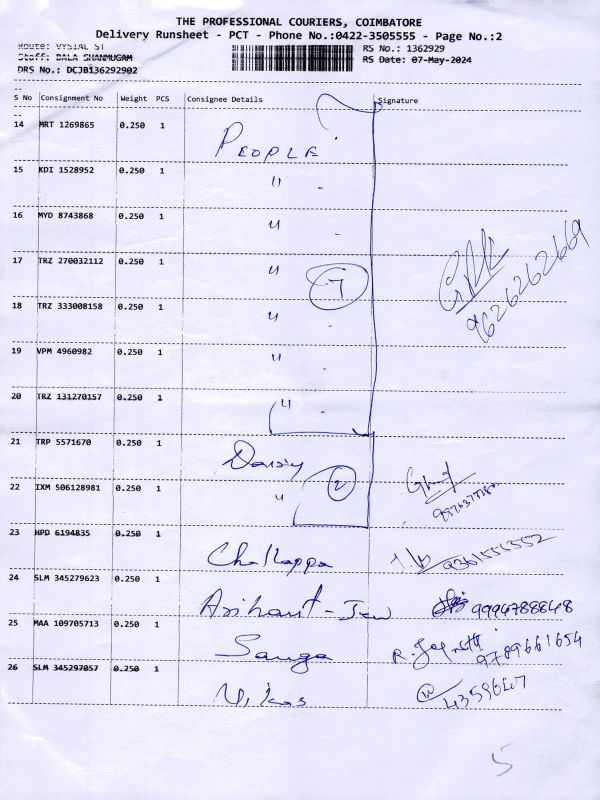 THE PROFESSIONAL COURIERS, COIMBATORE
Delivery Runsheet - PCT - Phone No.:0422-3505555 - Page No.:2
Route: VYSIAL ST RS No.: 1362929
Staff: BALA SHANMUGAM RS Date: 07-May-2024
DRS No.: DCJB136292902
S No Consignment No Weight PCS Consignee Details Signature
14 MRT 1269865 0.250 1 PEOPLE
15 KDI 1528952 0.250 1 "
16 MYD 8743868 0.250 1 "
17 TRZ 270032112 0.250 1 " 7 9626262669
18 TRZ 333008158 0.250 1 "
19 VPM 4960982 0.250 1 "
20 TRZ 131270157 0.250 1 "
21 TRP 5571670 0.250 1 Daisy
22 IXM 506128981 0.250 1 " 2
23 HPD 6194835 0.250 1 Challappa 9361555352
24 SLM 345279623 0.250 1 Arihant-Jew 9994788848
25 MAA 109705713 0.250 1 Sanga 9789661654
26 SLM 345297057 0.250 1 Vikas
5